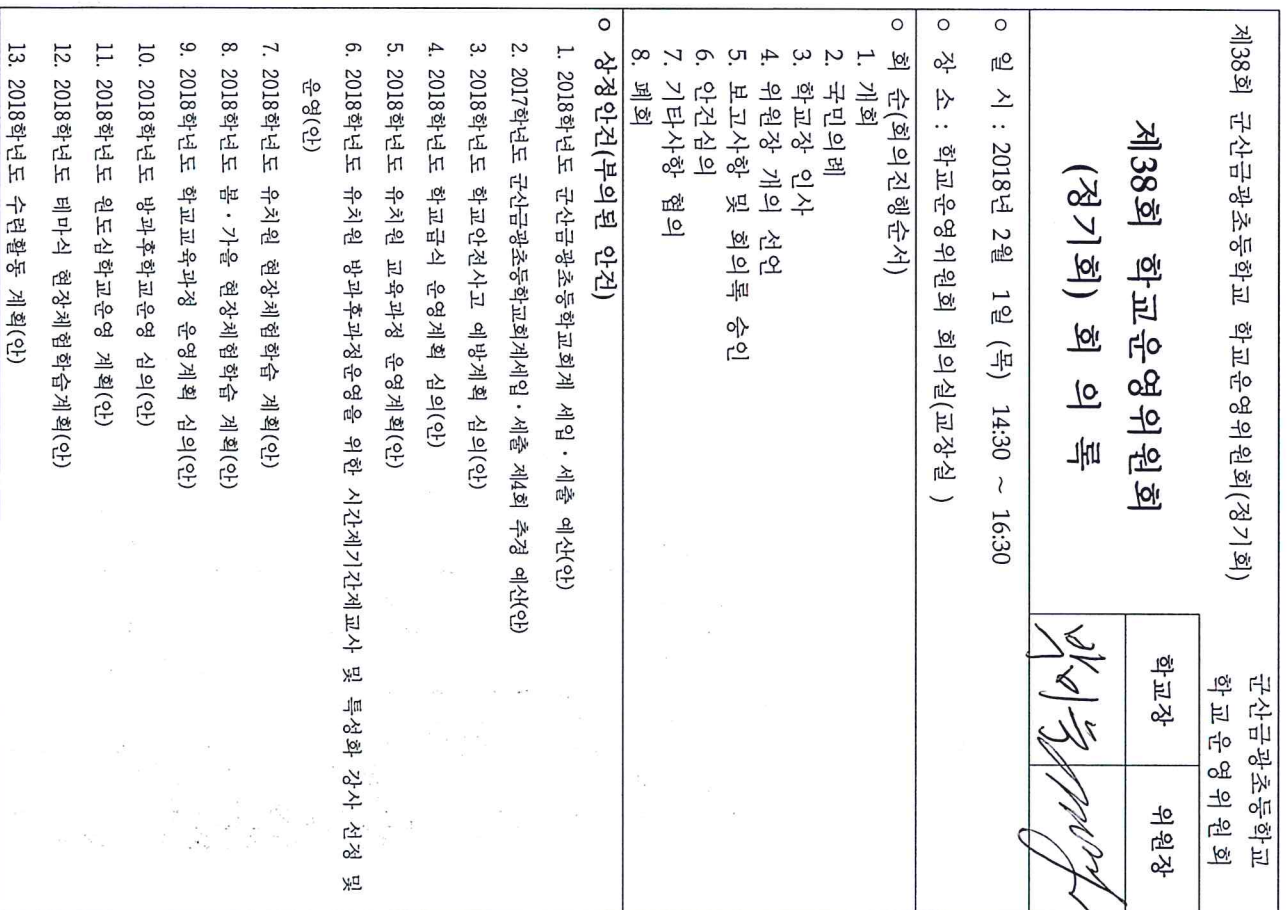 제38회 군산금광초등학교 학교운영위원회(정기회)
군산금광초등학교
학교운영위원회
제38회 학교운영위원회
(정기회) 회 의 록
학교장
위원장
○ 일 시 : 2018년 2월 1일 (목) 14:30 ~ 16:30
○ 장 소 : 학교운영위원회 회의실(교장실 )
○ 회 순(회의진행순서)
1. 개회
2. 국민의례
3. 학교장 인사
4. 위원장 개의 선언
5. 보고사항 및 회의록 승인
6. 안건심의
7. 기타사항 협의
8. 폐회
○ 상정안건(부의된 안건)
1. 2018학년도 군산금광초등학교회계 세입·세출 예산(안)
2. 2017학년도 군산금광초등학교회계세입·세출 제4회 추경 예산(안)
3. 2018학년도 학교안전사고 예방계획 심의(안)
4. 2018학년도 학교급식 운영계획 심의(안)
5. 2018학년도 유치원 교육과정 운영계획(안)
6. 2018학년도 유치원 방과후과정운영을 위한 시간제기간제교사 및 특성화 강사 선정 및
운영(안)
7. 2018학년도 유치원 현장체험학습 계획(안)
8. 2018학년도 봄·가을 현장체험학습 계획(안)
9. 2018학년도 학교교육과정 운영계획 심의(안)
10. 2018학년도 방과후학교운영 심의(안)
11. 2018학년도 원도심학교운영 계획(안)
12. 2018학년도 테마식 현장체험학습계획(안)
13. 2018학년도 수련활동 계획(안)